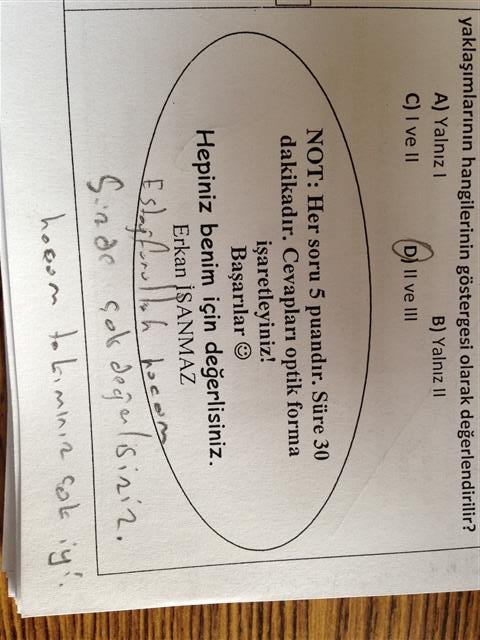 yaklaşımlarının hangilerinin göstergesi olarak değerlendirilir?
A) Yalnız I B) Yalnız II
C) I ve II D) II ve III
NOT: Her soru 5 puandır. Süre 30
dakikadır. Cevapları optik forma
işaretleyiniz!
Başarılar ☺
Hepiniz benim için değerlisiniz.
Erkan İSANMAZ
Estağfurullah hocam
Sizde çok değerlisiniz.
hocam takımınız çok iyi.